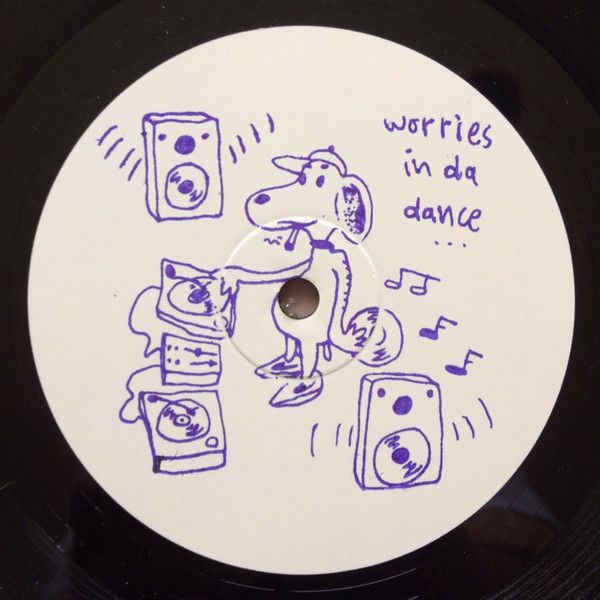 worries
in da
dance
...